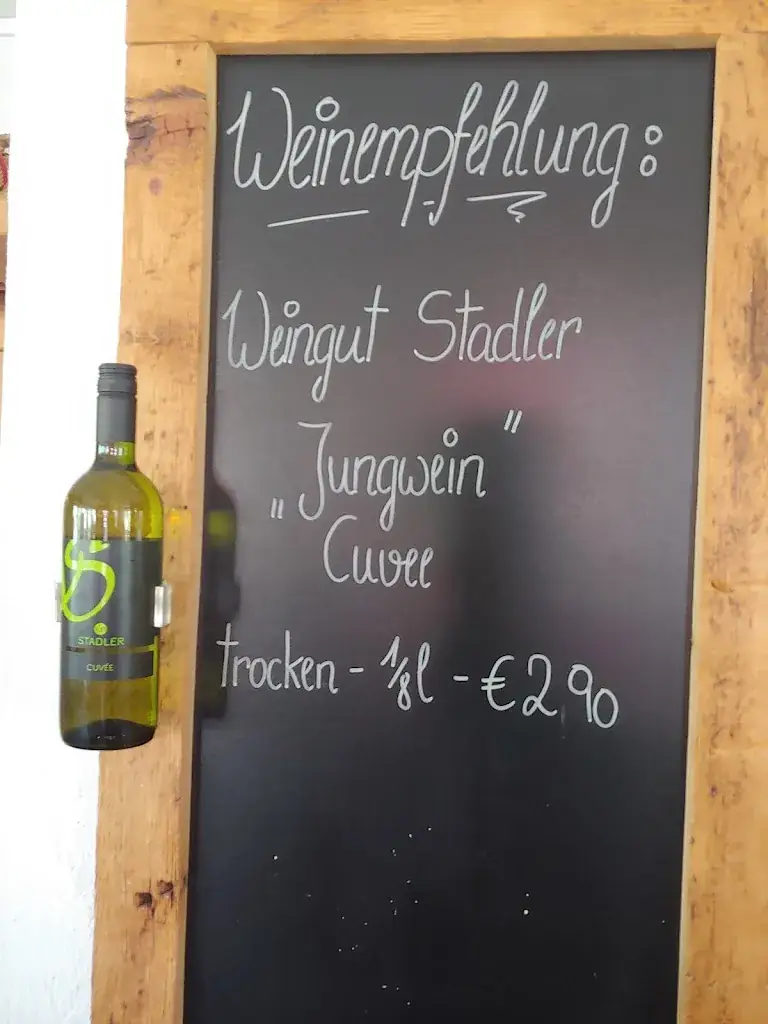 Weinempfehlung:
Weingut Stadler
„Jungwein"
Cuvee
trocken - 1/8l - € 2 90
STADLER
CUVÉE